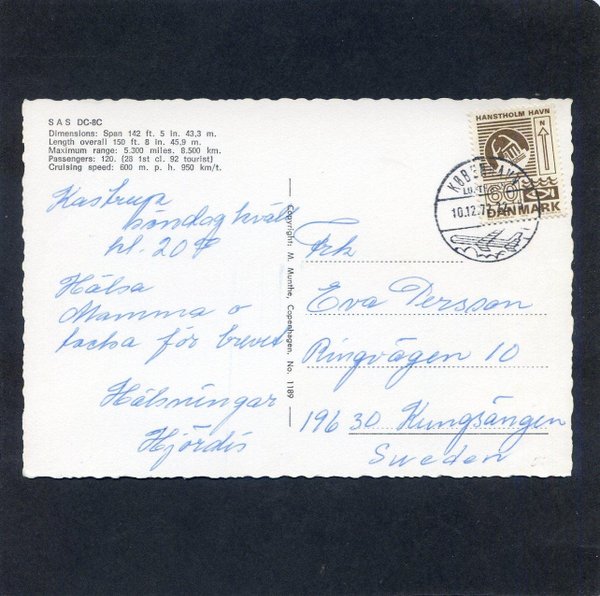 SAS DC-8C
Dimensions: Span 142 ft. 5 in. 43,3 m.
Length overall 150 ft. 8 in. 45,9 m.
Maximum range: 5.300 miles. 8.500 km.
Passengers: 120. (28 1st cl. 92 tourist)
Cruising speed: 600 m. p. h. 950 km/t.
Kastrup
söndag kväll
kl. 20
Hälsa
Mamma o
tacka för brevet
Hälsningar
Hjördis
Copyright: M. Munthe, Copenhagen. No. 1189
HANSTHOLM HAVN
N
60
DANMARK
10.12.7
Frk
Eva Persson
Ringvägen 10
196 30 Kungsängen
Sweden